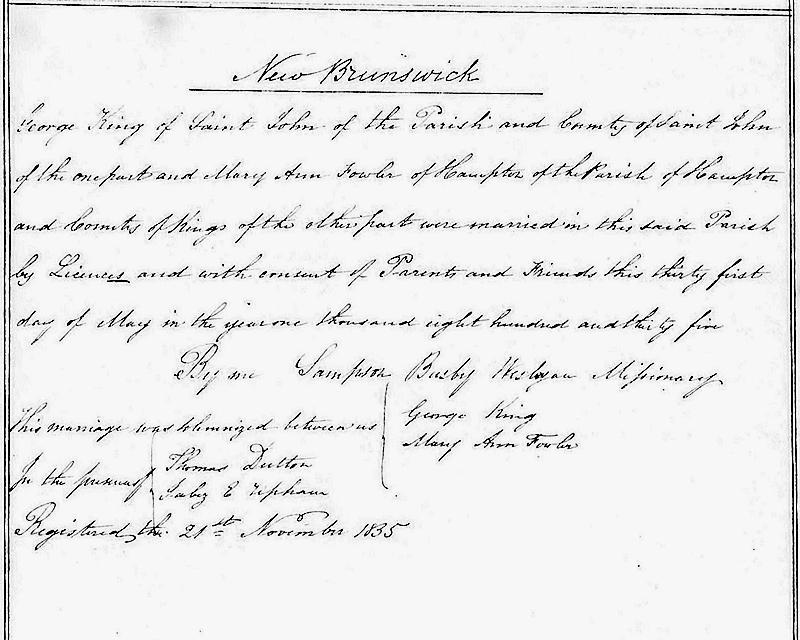 New Brunswick
George King of Saint John of the Parish and County of Saint John
of the one part and Mary Ann Fowler of Hampton of the Parish of Hampton
and County of Kings of the other part were married in this said Parish
by Licences and with consent of Parents and Friends this thirty first
day of May in the year one thousand eight hundred and thirty five
By me Sampson Busby Wesleyan Missionary
This marriage was solemnized between us
George King
Mary Ann Fowler
In the presence of
Thomas Dutton
E Upham
Registered the 21st November 1835